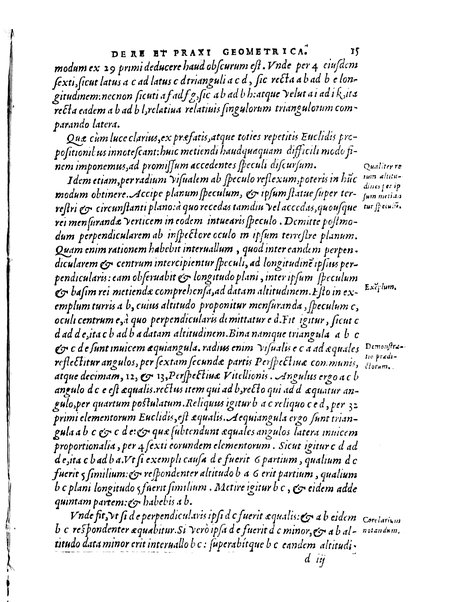 DE RE ET PRAXI GEOMETRICA. 15
modum ex 29 primi deducere haud obscurum est. Vnde per 4 eiusdem
sexti, sicut latus a c ad latus c d trianguli a c d, sic recta a b ad b e lon-
gitudinem: necnon sicuti a f ad f g, sic a b ad b h: atque velut a i ad i k, ita
recta eadem a b ad b l, relatiua relatiuis singulorum triangulorum com-
parando latera.
Quæ cum luce clarius, ex præfatis, atque toties repetitis Euclidis pro-
positionibus innotescant: huic metiendi haudquaquam difficili modo fi-
nem imponemus, ad promissum accedentes speculi discursum.
Idem etiam, per radium visualem ab speculo reflexum, poteris in hūc
modum obtinere. Accipe planum speculum, & ipsum statue super ter-
restri & circunstanti plano: à quo recedas tamdiu vel accedas, quousque
rei mensurandæ verticem in eodem intuearis speculo. Demitte postmo-
dum perpendicularem ab inspectore oculo in ipsum terrestre planum.
Quam enim rationem habebit interuallum, quod inter eandem perpen-
dicularem & centrum intercipientur speculi, ad longitudinē ipsius per-
pendicularis: eam obseruabit & longitudo plani, inter ipsum speculum
& basim rei metiendæ comprehensa, ad datam altitudinem. Esto in ex-
emplum turris a b, cuius altitudo proponitur mensuranda, speculum c,
oculi centrum e, à quo perpendicularis dimittatur e d. Fit igitur, sicut c
d ad d e, ita c b ad b a datam altitudinem. Bina namque triangula a b c
& c d e sunt inuicem æquiangula. radius enim visualis e c a ad æquales
reflectitur angulos, per sextam secundæ partis Perspectiuæ communis,
atque decimam, 12, & 13, Perspectiuæ Vitellionis. Angulus ergo a c b
angulo d c e est æqualis. rectus item qui ad b, recto qui ad d æquatur an-
gulo, per quartum postulatum. Reliquus igitur b a c reliquo c e d, per 32
primi elementorum Euclidis, est æqualis. Aequiangula ergo sunt trian-
gula a b c & c d e: & quæ subtendunt æquales angulos latera inuicem
proportionalia, per 4 sexti eorundem elementorum. Sicut igitur c d ad
d e, ita c b ad b a. Vt si exempli causa d e fuerit 6 partium, qualium d c
fuerit 5 similium: & respondenter altitudo b a 6 erit partium, qualium
b c plani longitudo 5 fuerit similium. Metire igitur b c, & eidem adde
quintam partem: & habebis a b.
Vnde fit, vt si d e perpendicularis ipsi d c fuerit æqualis: & a b eidem
b c respondenter æquabitur. Si verò ipsa d e fuerit d c minor, & a b al-
titudo data minor erit interuallo b c: superabitque b c eandem altitudi-
d iij
Qualiter re
rum altitu-
dines per ip
sum metiātur speculū.
Exēplum.
Demonstra-
tio prædi-
ctorum.
Corolarium
notandum.